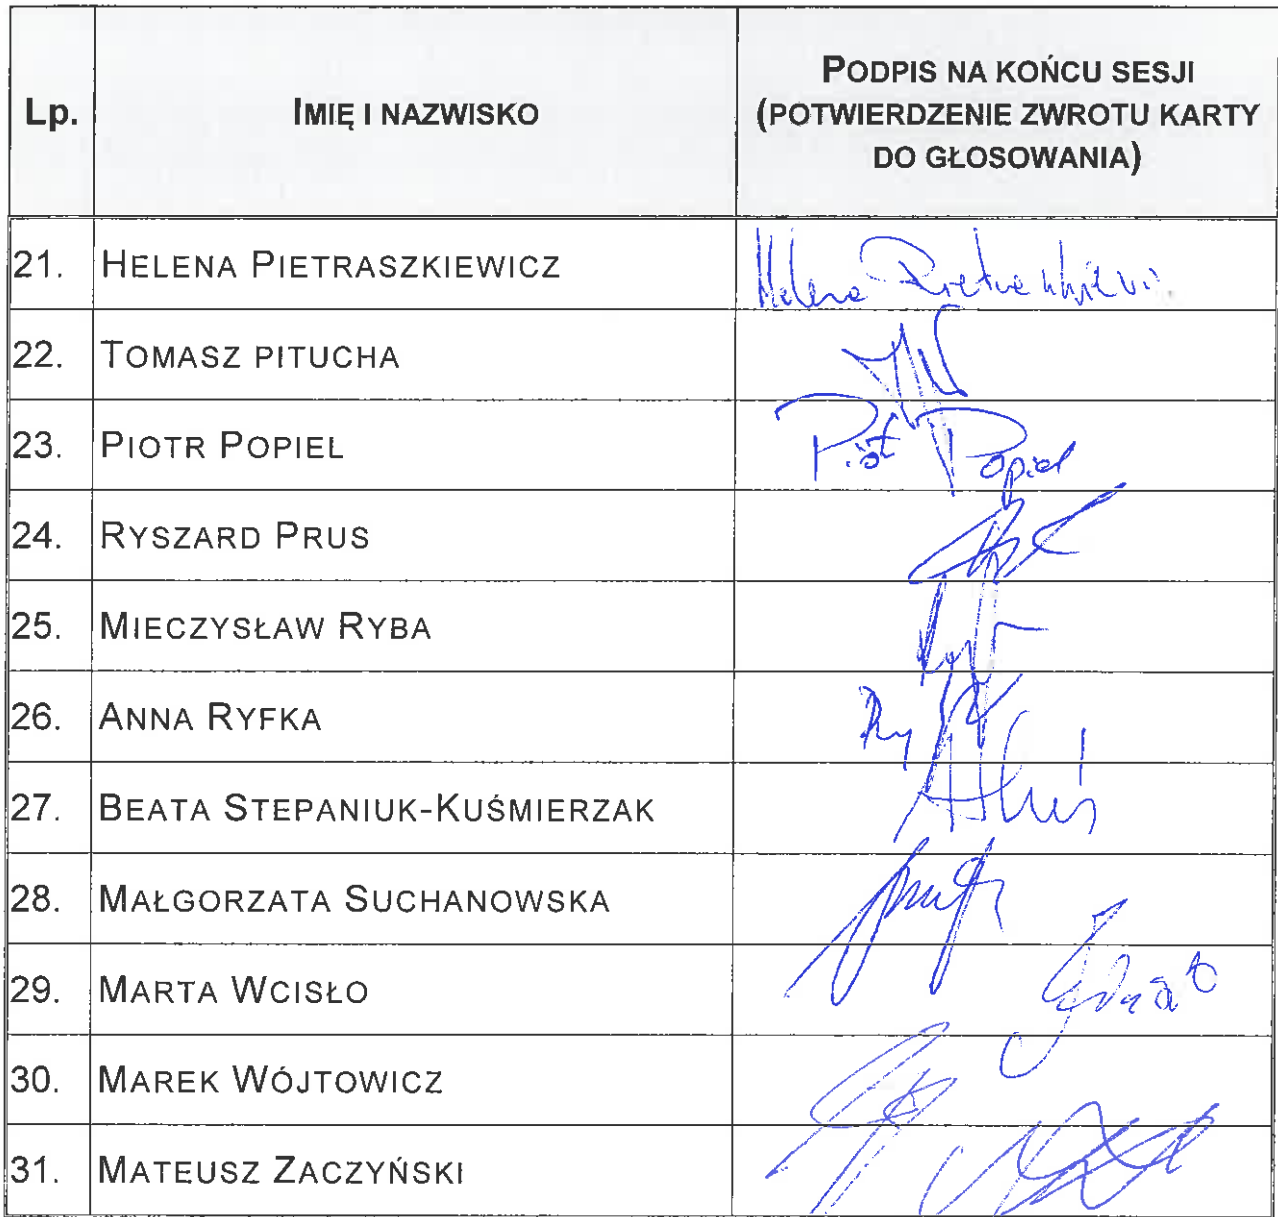 Lp.
IMIĘ I NAZWISKO
PODPIS NA KOŃCU SESJI
(POTWIERDZENIE ZWROTU KARTY
DO GŁOSOWANIA)
21. HELENA PIETRASZKIEWICZ Helena
22. TOMASZ PITUCHA
23. PIOTR POPIEL Piotr Popiel
24. RYSZARD PRUS
25. MIECZYSŁAW RYBA
26. ANNA RYFKA
27. BEATA STEPANIUK-KUŚMIERZAK
28. MAŁGORZATA SUCHANOWSKA
29. MARTA WCISŁO
30. MAREK WÓJTOWICZ
31. MATEUSZ ZACZYŃSKI